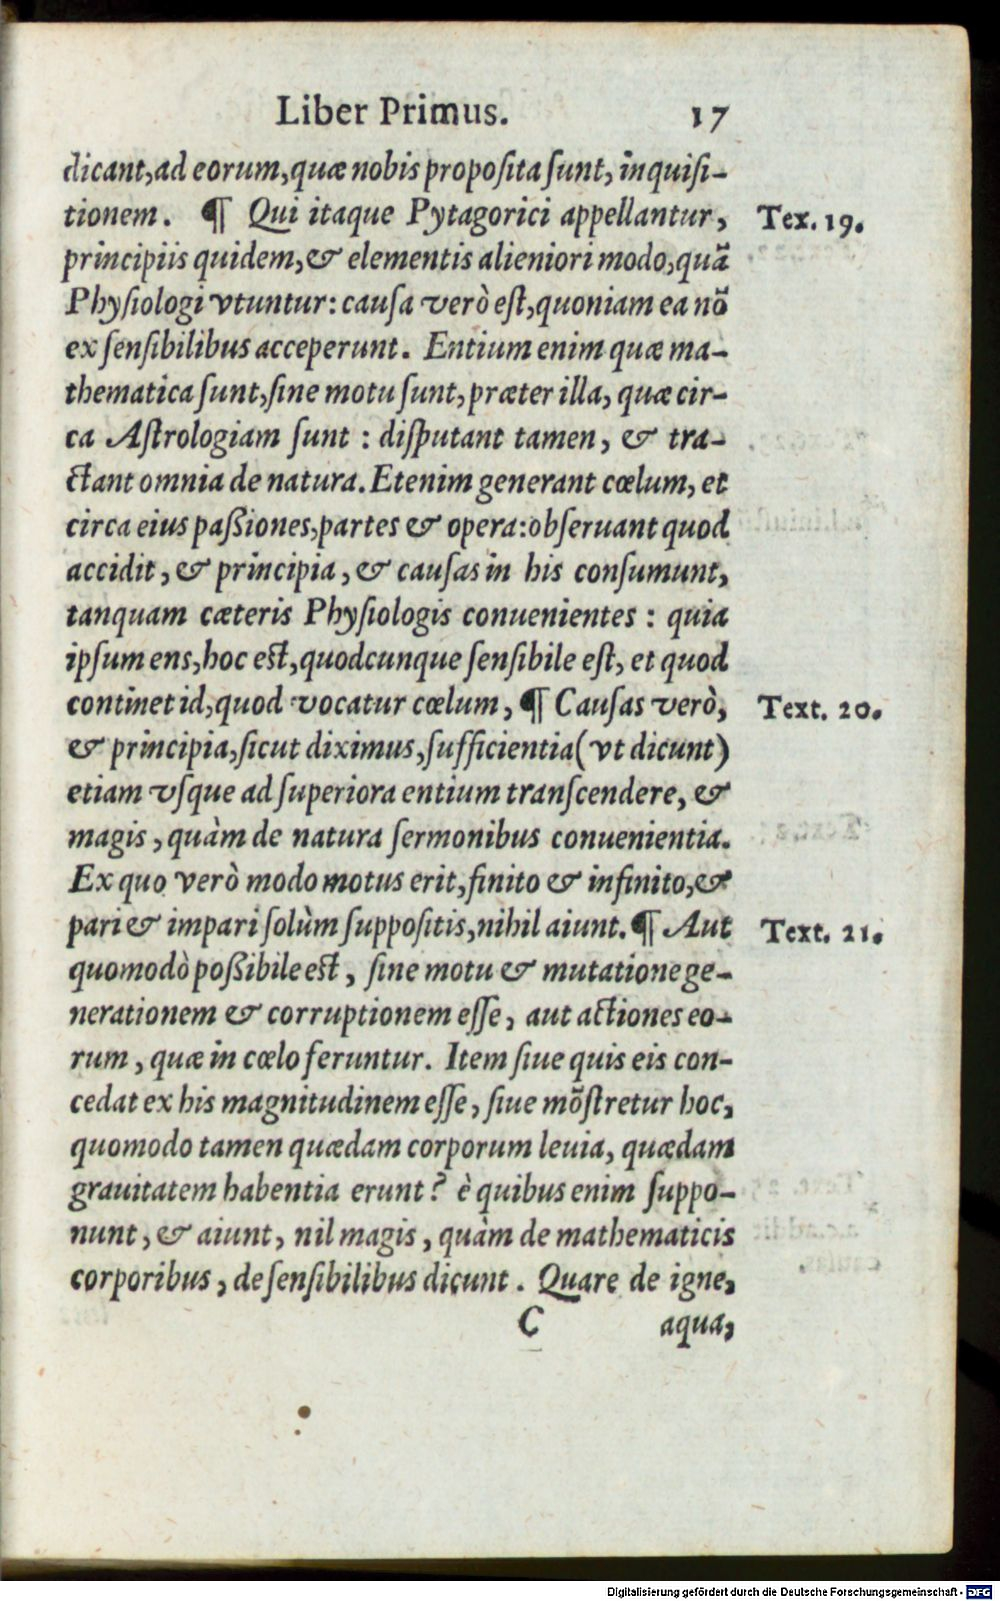 Liber Primus. 17
dicant,ad eorum,quæ nobis propoſita ſunt, inquiſi-
tionem. ¶ Qui itaque Pytagorici appellantur, Tex. 19.
principiis quidem,& elementis alieniori modo,quā
Phyſiologi vtuntur: cauſa verò eſt,quoniam ea nō
ex ſenſibilibus acceperunt. Entium enim quæ ma-
thematica ſunt,ſine motu ſunt, præter illa, quæ cir-
ca Aſtrologiam ſunt : diſputant tamen, & tra-
ctant omnia de natura. Etenim generant cœlum, et
circa eius paßiones,partes & opera:obſeruant quod
accidit, & principia, & cauſas in his conſumunt,
tanquam cæteris Phyſiologis conuenientes : quia
ipſum ens,hoc est,quodcunque ſenſibile eſt, et quod
continet id,quod vocatur cœlum, ¶ Cauſas verò, Text. 20.
& principia,ſicut diximus,ſufficientia (vt dicunt)
etiam vſque ad ſuperiora entium tranſcendere, &
magis, quàm de natura ſermonibus conuenientia.
Ex quo verò modo motus erit,finito & infinito,&
pari & impari ſolùm ſuppoſitis,nihil aiunt. ¶ Aut Text. 21.
quomodò poßibile est, ſine motu & mutatione ge-
nerationem & corruptionem eſſe, aut actiones eo-
rum, quæ in cœlo feruntur. Item ſiue quis eis con-
cedat ex his magnitudinem eſſe, ſiue mōſtretur hoc,
quomodo tamen quædam corporum leuia, quædam
grauitatem habentia erunt? è quibus enim ſuppo-
nunt, & aiunt, nil magis, quàm de mathematicis
corporibus, de ſenſibilibus dicunt. Quare de igne,
C aqua,
Digitalisierung gefördert durch die Deutsche Forschungsgemeinschaft - DFG